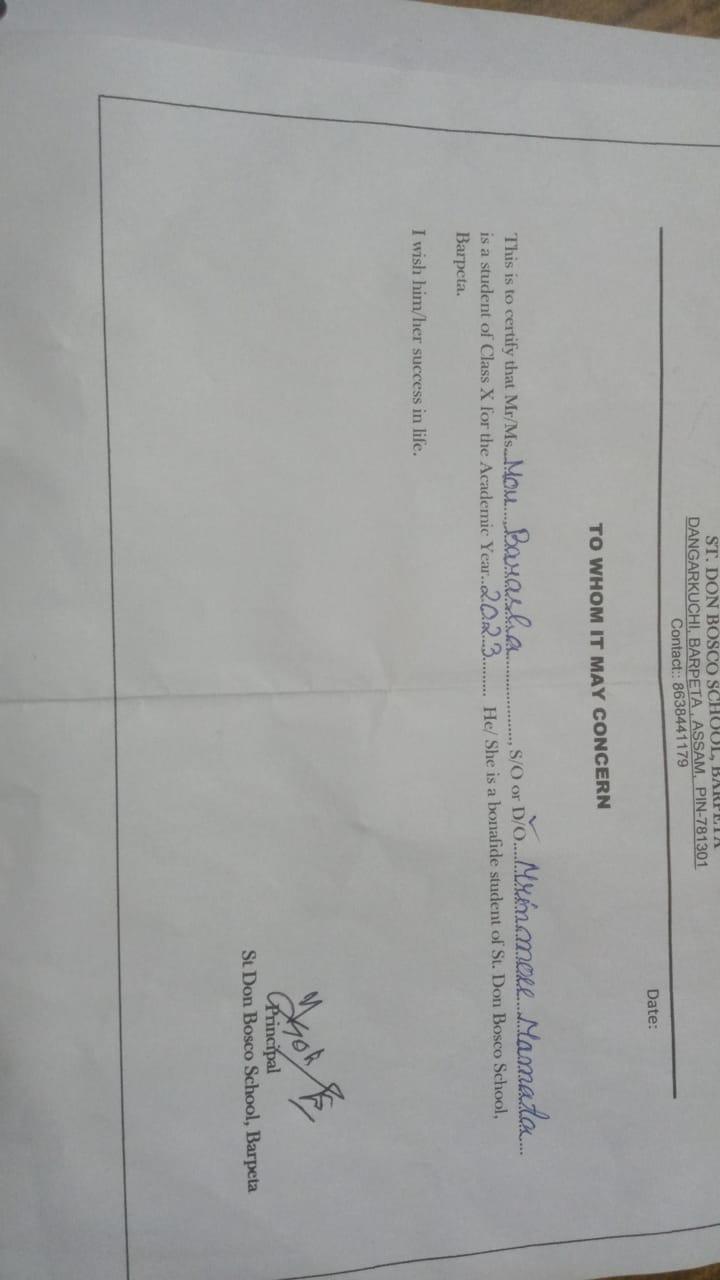 ST. DON BOSCO SCHOOL, BARPETA
DANGARKUCHI, BARPETA, ASSAM, PIN-781301
Contact:: 8638441179
Date:
TO WHOM IT MAY CONCERN
This is to certify that Mr/Ms...Mou Barasha..................., S/O or D/O....Mrinmoee Mamata...
is a student of Class X for the Academic Year..2023......... He/ She is a bonafide student of St. Don Bosco School,
Barpeta.
I wish him/her success in life.
Principal
St Don Bosco School, Barpeta